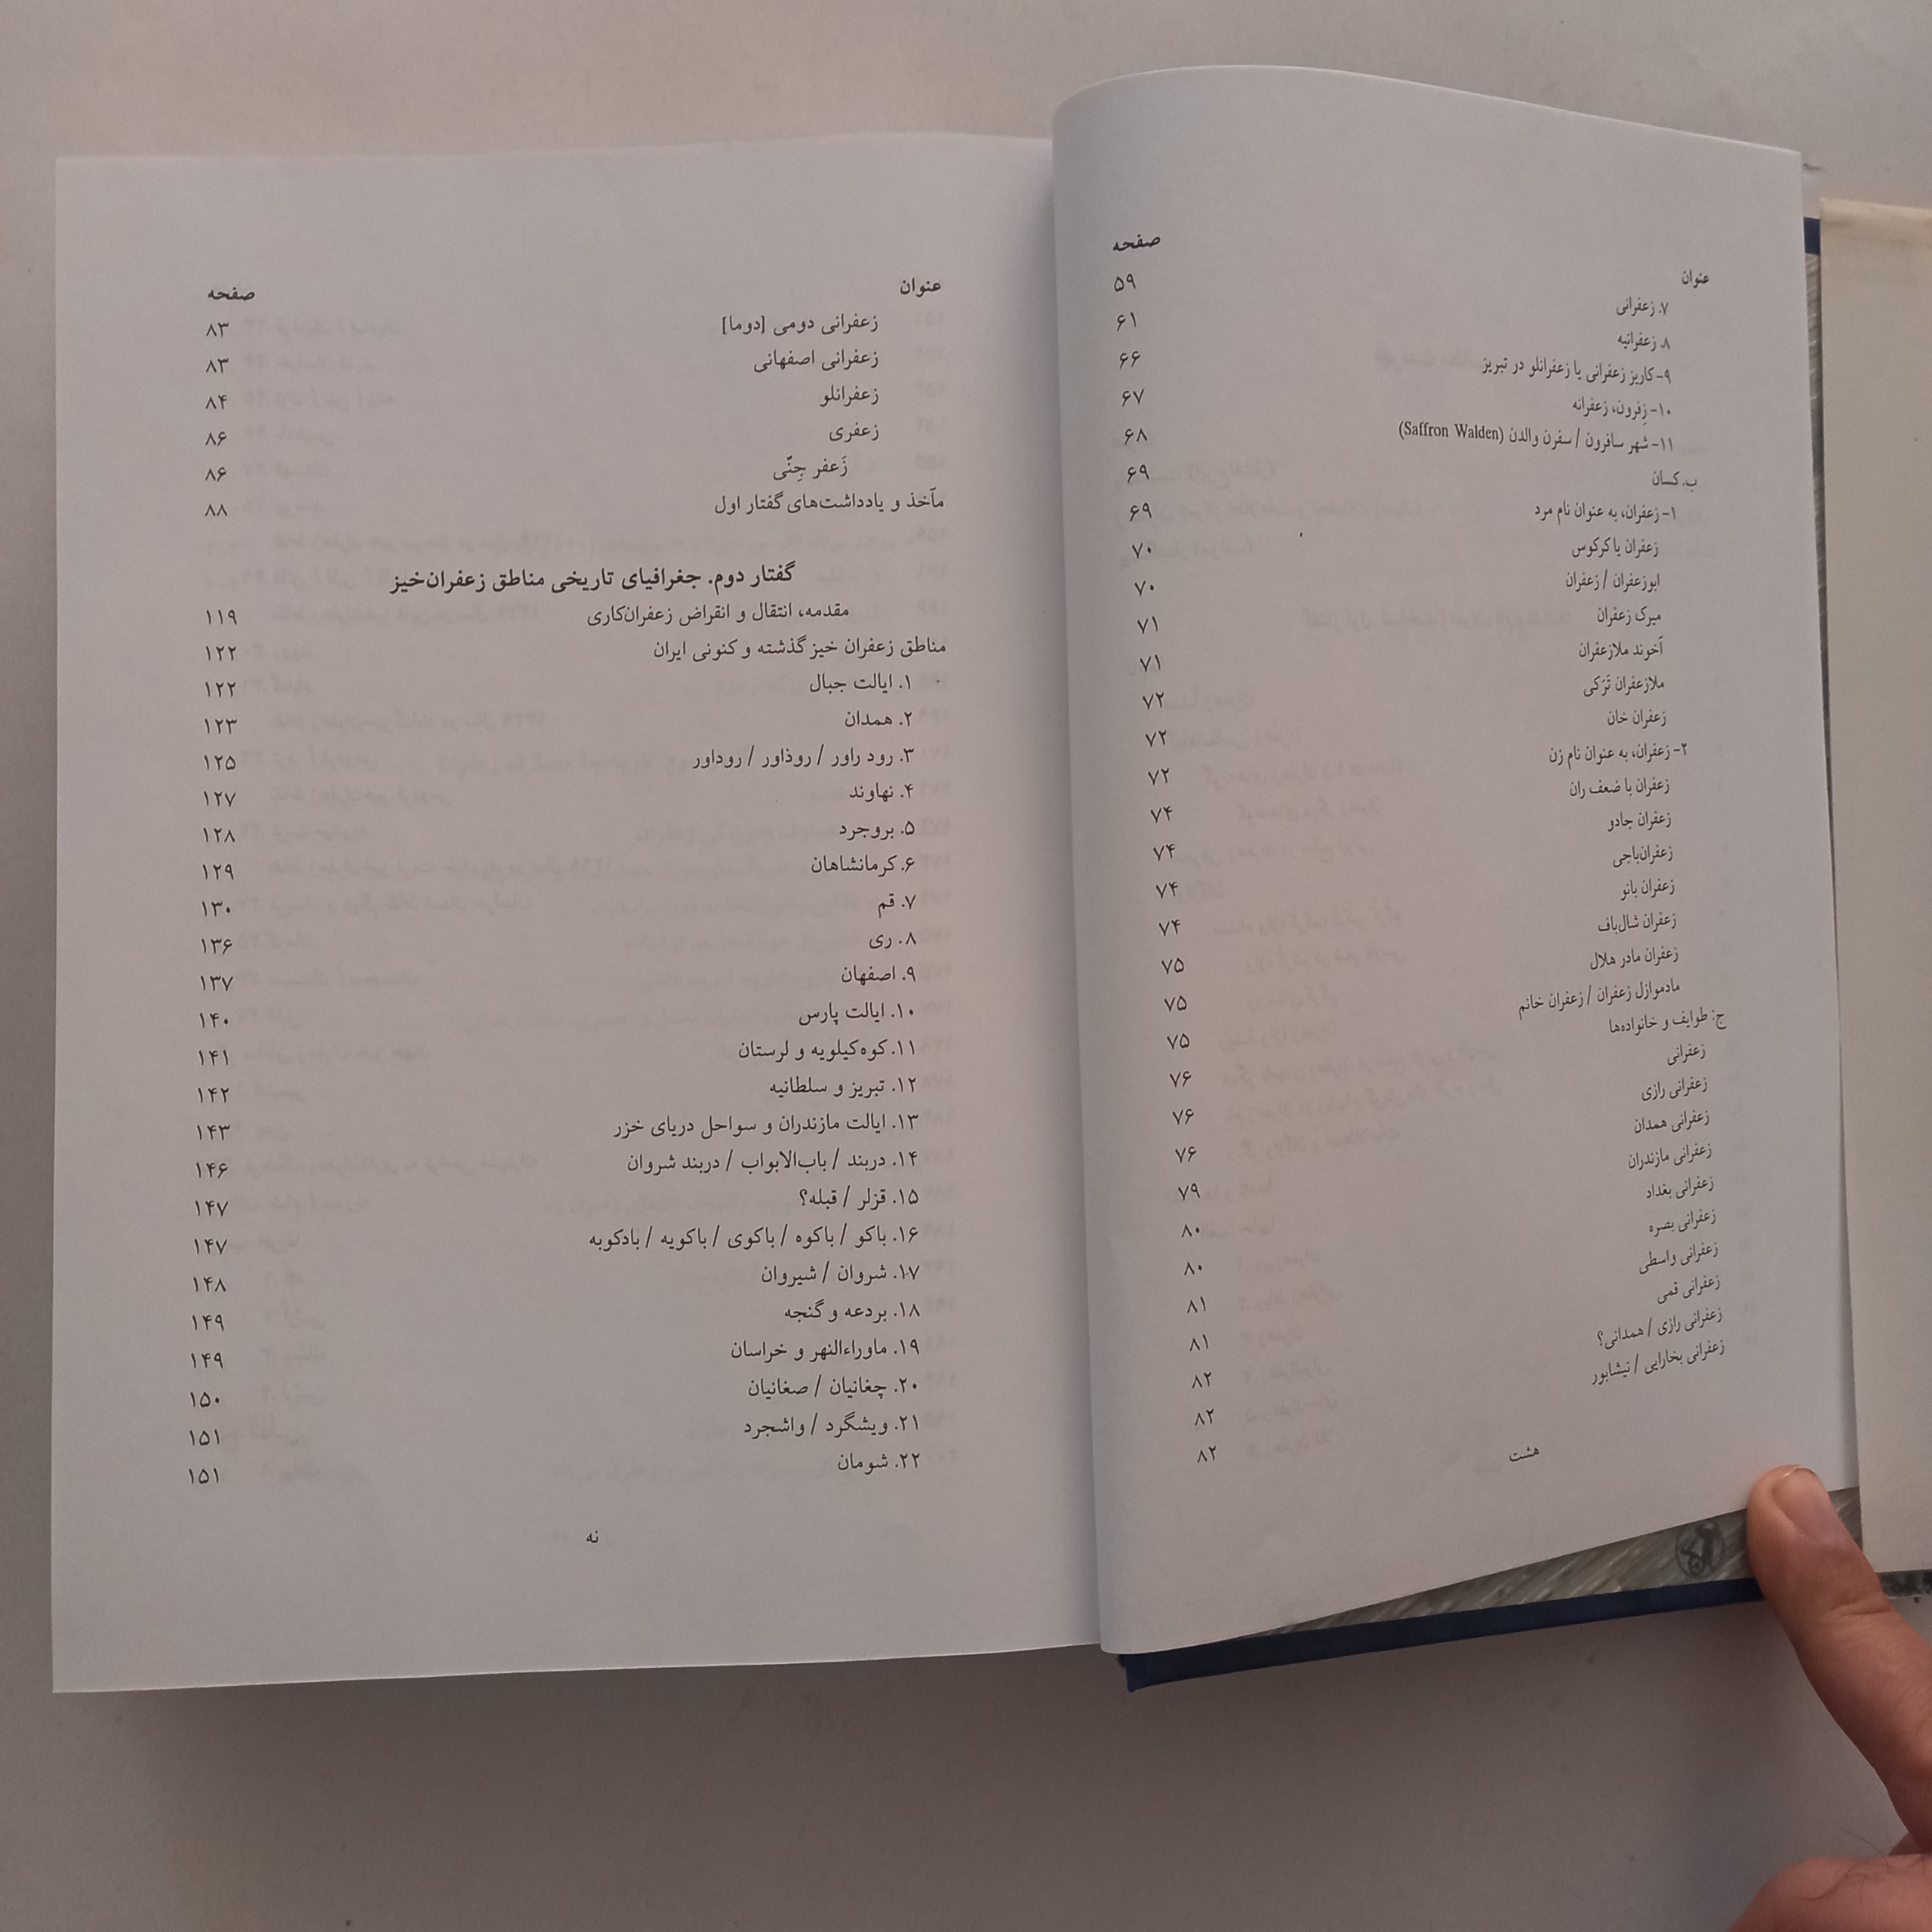 عنوان صفحه
۷. زعفرانی ۵۹
۸. زعفرانیه ۶۱
۹- کاریز زعفرانی یا زعفرانلو در تبریز ۶۶
۱۰- زِفرون، زعفرانه ۶۷
۱۱- شهر سافرون / سفرن والدن (Saffron Walden) ۶۸
ب. کسان ۶۹
۱- زعفران، به عنوان نام مرد ۶۹
زعفران یا کرکوس ۷۰
ابوزعفران / زعفران ۷۰
میرک زعفران ۷۱
آخوند ملازعفران ۷۱
ملازعفران تَرَکی ۷۲
زعفران خان ۷۲
۲- زعفران، به عنوان نام زن ۷۲
زعفران با ضعف ران ۷۴
زعفران جادو ۷۴
زعفران‌باجی ۷۴
زعفران بانو ۷۴
زعفران شال‌باف ۷۵
زعفران مادر هلال ۷۵
مادموازل زعفران / زعفران خانم ۷۵
ج: طوایف و خانواده‌ها ۷۶
زعفرانی ۷۶
زعفرانی رازی ۷۶
زعفرانی همدان ۷۹
زعفرانی مازندران ۸۰
زعفرانی بغداد ۸۰
زعفرانی بصره ۸۱
زعفرانی واسطی ۸۱
زعفرانی قمی ۸۲
زعفرانی رازی / همدانی؟ ۸۲
زعفرانی بخارایی / نیشابور ۸۲
هشت
عنوان صفحه
زعفرانی دومی [دوما] ۸۳
زعفرانی اصفهانی ۸۳
زعفرانلو ۸۴
زعفری ۸۶
زَعفر جِنّی ۸۶
مآخذ و یادداشت‌های گفتار اول ۸۸
گفتار دوم. جغرافیای تاریخی مناطق زعفران‌خیز
مقدمه، انتقال و انقراض زعفران‌کاری ۱۱۹
مناطق زعفران خیز گذشته و کنونی ایران ۱۲۲
۱. ایالت جبال ۱۲۲
۲. همدان ۱۲۳
۳. رود راور / روذاور / روداور ۱۲۵
۴. نهاوند ۱۲۷
۵. بروجرد ۱۲۸
۶. کرمانشاهان ۱۲۹
۷. قم ۱۳۰
۸. ری ۱۳۶
۹. اصفهان ۱۳۷
۱۰. ایالت پارس ۱۴۰
۱۱. کوه‌کیلویه و لرستان ۱۴۱
۱۲. تبریز و سلطانیه ۱۴۲
۱۳. ایالت مازندران و سواحل دریای خزر ۱۴۳
۱۴. دربند / باب‌الابواب / دربند شروان ۱۴۶
۱۵. قزلر / قبله؟ ۱۴۷
۱۶. باکو / باکوه / باکوی / باکویه / بادکوبه ۱۴۷
۱۷. شروان / شیروان ۱۴۸
۱۸. بردعه و گنجه ۱۴۹
۱۹. ماوراءالنهر و خراسان ۱۴۹
۲۰. چغانیان / صغانیان ۱۵۰
۲۱. ویشگرد / واشجرد ۱۵۱
۲۲. شومان ۱۵۱
نه